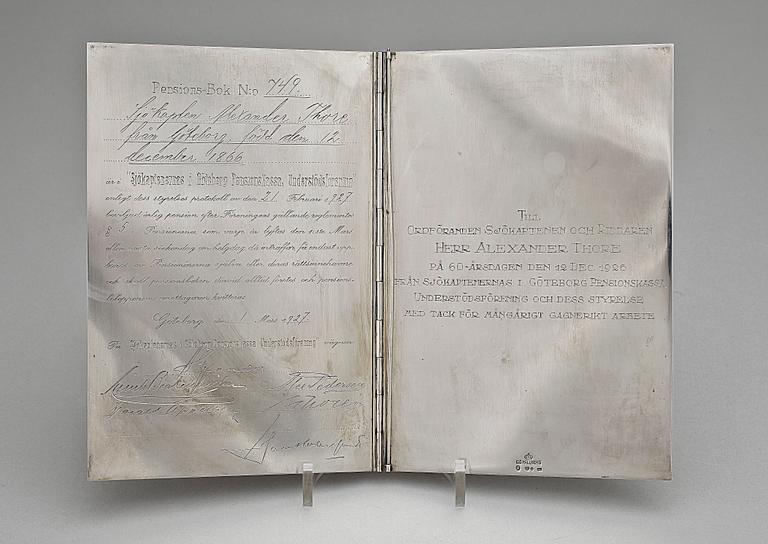 Pensions-Bok N:o 749.
Sjökapten Alexander Thore
från Göteborg, född den 12
december 1866
är i "Sjökaptenernas i Göteborg Pensionskassa, Understödsförening"
enligt dess styrelses protokoll av den 21 Februari 1927
beviljad årlig pension efter Föreningens gällande reglemente
§ 5. Pensionerna som varje år lyftas den 1:ste Mars,
eller nästa söckendag om helgdag då inträffar, få endast upp-
bäras av Pensionärerna själva eller deras rättsinnehavare
och skall pensionsboken därvid alltid företes och pensions-
beloppet av mottagaren kvitteras
Göteborg den 1 Mars 1927.
För "Sjökaptenernas i Göteborg Pensionskassa Understödsförening"
TILL
ORDFÖRANDEN SJÖKAPTENEN OCH RIDDAREN
HERR ALEXANDER THORE
PÅ 60-ÅRSDAGEN DEN 12 DEC. 1926
FRÅN SJÖKAPTENERNAS I GÖTEBORG PENSIONSKASSA
UNDERSTÖDSFÖRENING OCH DESS STYRELSE
MED TACK FÖR MÅNGÅRIGT GAGNERIKT ARBETE